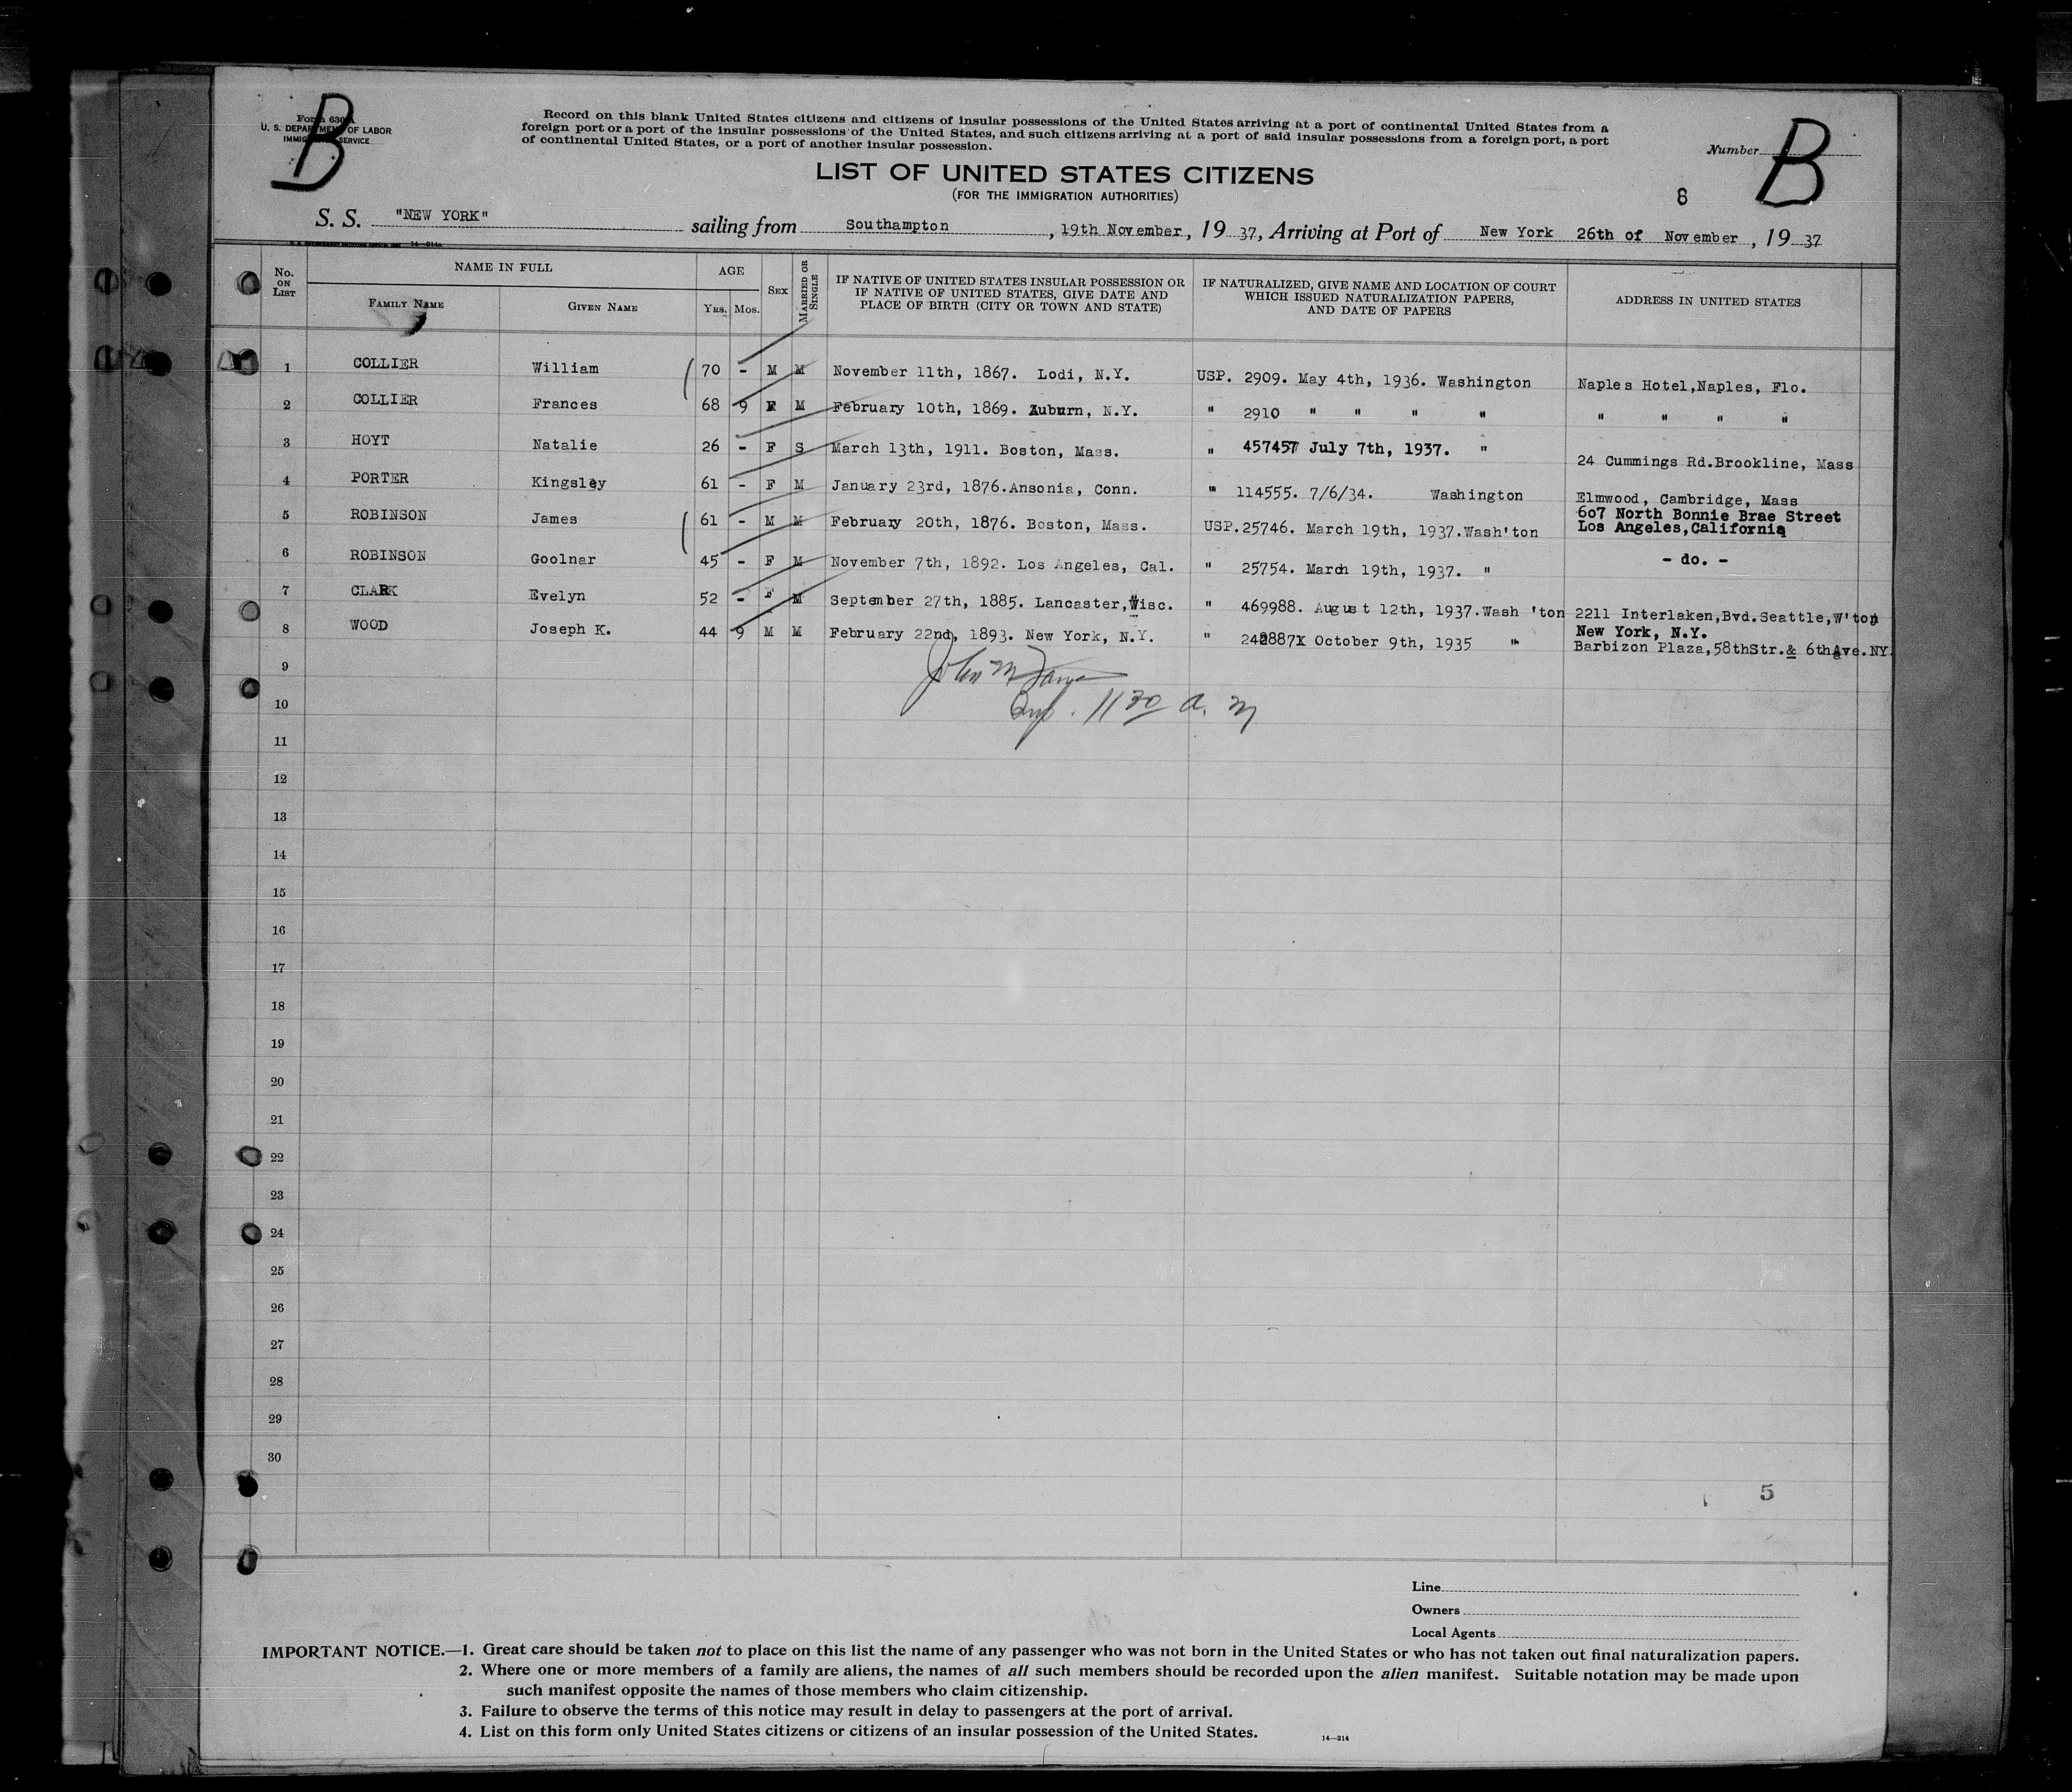 B
Form 630 A
U. S. DEPARTMENT OF LABOR
IMMIGRATION SERVICE
Record on this blank United States citizens and citizens of insular possessions of the United States arriving at a port of continental United States from a
foreign port or a port of the insular possessions of the United States, and such citizens arriving at a port of said insular possessions from a foreign port, a port
of continental United States, or a port of another insular possession.
Number B
LIST OF UNITED STATES CITIZENS
(FOR THE IMMIGRATION AUTHORITIES)
8
S. S. "NEW YORK" sailing from Southampton, 19th November, 19 37, Arriving at Port of New York 26th of November, 19 37
14—214a
No. ON LIST NAME IN FULL AGE SEX MARRIED OR SINGLE IF NATIVE OF UNITED STATES INSULAR POSSESSION OR IF NATIVE OF UNITED STATES, GIVE DATE AND PLACE OF BIRTH (CITY OR TOWN AND STATE) IF NATURALIZED, GIVE NAME AND LOCATION OF COURT WHICH ISSUED NATURALIZATION PAPERS, AND DATE OF PAPERS ADDRESS IN UNITED STATES
FAMILY NAME GIVEN NAME YRS. MOS.
1 COLLIER William 70 - M M November 11th, 1867. Lodi, N.Y. USP. 2909. May 4th, 1936. Washington Naples Hotel,Naples, Flo.
2 COLLIER Frances 68 9 F M February 10th, 1869. Auburn, N.Y. " 2910 " " " " " " " "
3 HOYT Natalie 26 - F S March 13th, 1911. Boston, Mass. " 457457 July 7th, 1937. " 24 Cummings Rd.Brookline, Mass
4 PORTER Kingsley 61 - F M January 23rd, 1876.Ansonia, Conn. " 114555. 7/6/34. Washington Elmwood, Cambridge, Mass
5 ROBINSON James 61 - M M February 20th, 1876. Boston, Mass. USP.25746. March 19th, 1937.Wash'ton 607 North Bonnie Brae Street
Los Angeles,California
6 ROBINSON Goolnar 45 - F M November 7th, 1892. Los Angeles, Cal. " 25754. March 19th, 1937. " - do. -
7 CLARK Evelyn 52 - F M September 27th, 1885. Lancaster,Wisc. " 469988. August 12th, 1937.Wash 'ton 2211 Interlaken,Bvd.Seattle,W'ton
8 WOOD Joseph K. 44 9 M M February 22nd, 1893. New York, N.Y. " October 9th, 1935 " New York, N.Y.
Barbizon Plaza,58thStr.& 6thAve.NY.
9
John M
10
1130 a. m
11
12
13
14
15
16
17
18
19
20
21
22
23
24
25
26
27
28
29
30
5
Line
Owners
Local Agents
IMPORTANT NOTICE.—1. Great care should be taken not to place on this list the name of any passenger who was not born in the United States or who has not taken out final naturalization papers.
2. Where one or more members of a family are aliens, the names of all such members should be recorded upon the alien manifest. Suitable notation may be made upon
such manifest opposite the names of those members who claim citizenship.
3. Failure to observe the terms of this notice may result in delay to passengers at the port of arrival.
4. List on this form only United States citizens or citizens of an insular possession of the United States.
14—214